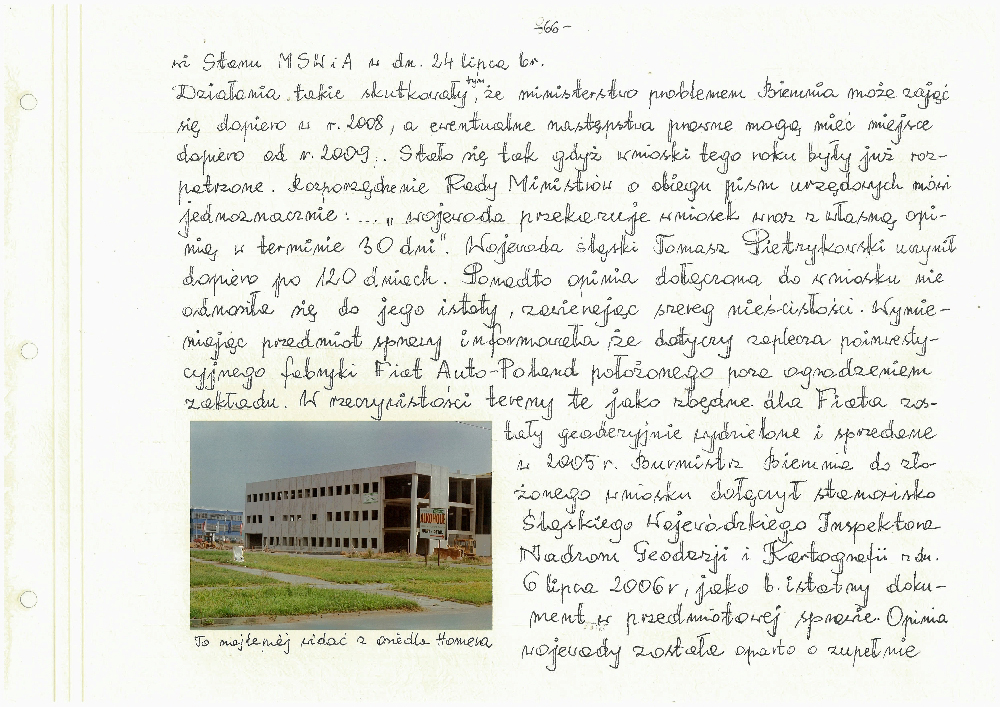 -66-
wi Stanu MSWiA w dn. 24 lipca br.
Działania takie skutkowały tym, że ministerstwo problemem Bierunia może zająć
się dopiero w r. 2008, a ewentualne następstwa prawne mogą mieć miejsce
dopiero od r. 2009. Stało się tak gdyż wnioski tego roku były już roz-
patrzone. Rozporządzenie Rady Ministrów o obiegu pism urzędowych mówi
jednoznacznie: ... „wojewoda przekazuje wniosek wraz z własną opi-
nią w terminie 30 dni". Wojewoda śląski Tomasz Pietrzykowski uczynił
dopiero po 120 dniach. Ponadto opinia dołączona do wniosku nie
odnosiła się do jego istoty, zawierając szereg nieścisłości. Wymie-
niając przedmiot sprawy informowała, że dotyczy zaplecza poinwesty-
cyjnego fabryki Fiat Auto-Poland położonego poza ogrodzeniem
zakładu. W rzeczywistości tereny te jako zbędne dla Fiata zos-
tały geodezyjnie wydzielone i sprzedane
w 2005 r. Burmistrz Bierunia do zło-
żonego wniosku dołączył stanowisko
Śląskiego Wojewódzkiego Inspektora
Nadzoru Geodezji i Kartografii z dn.
6 lipca 2006 r, jako b. istotny doku-
ment w przedmiotowej sprawie. Opinia
wojewody została oparta o zupełnie
To najłatwiej widać z osiedla Homera